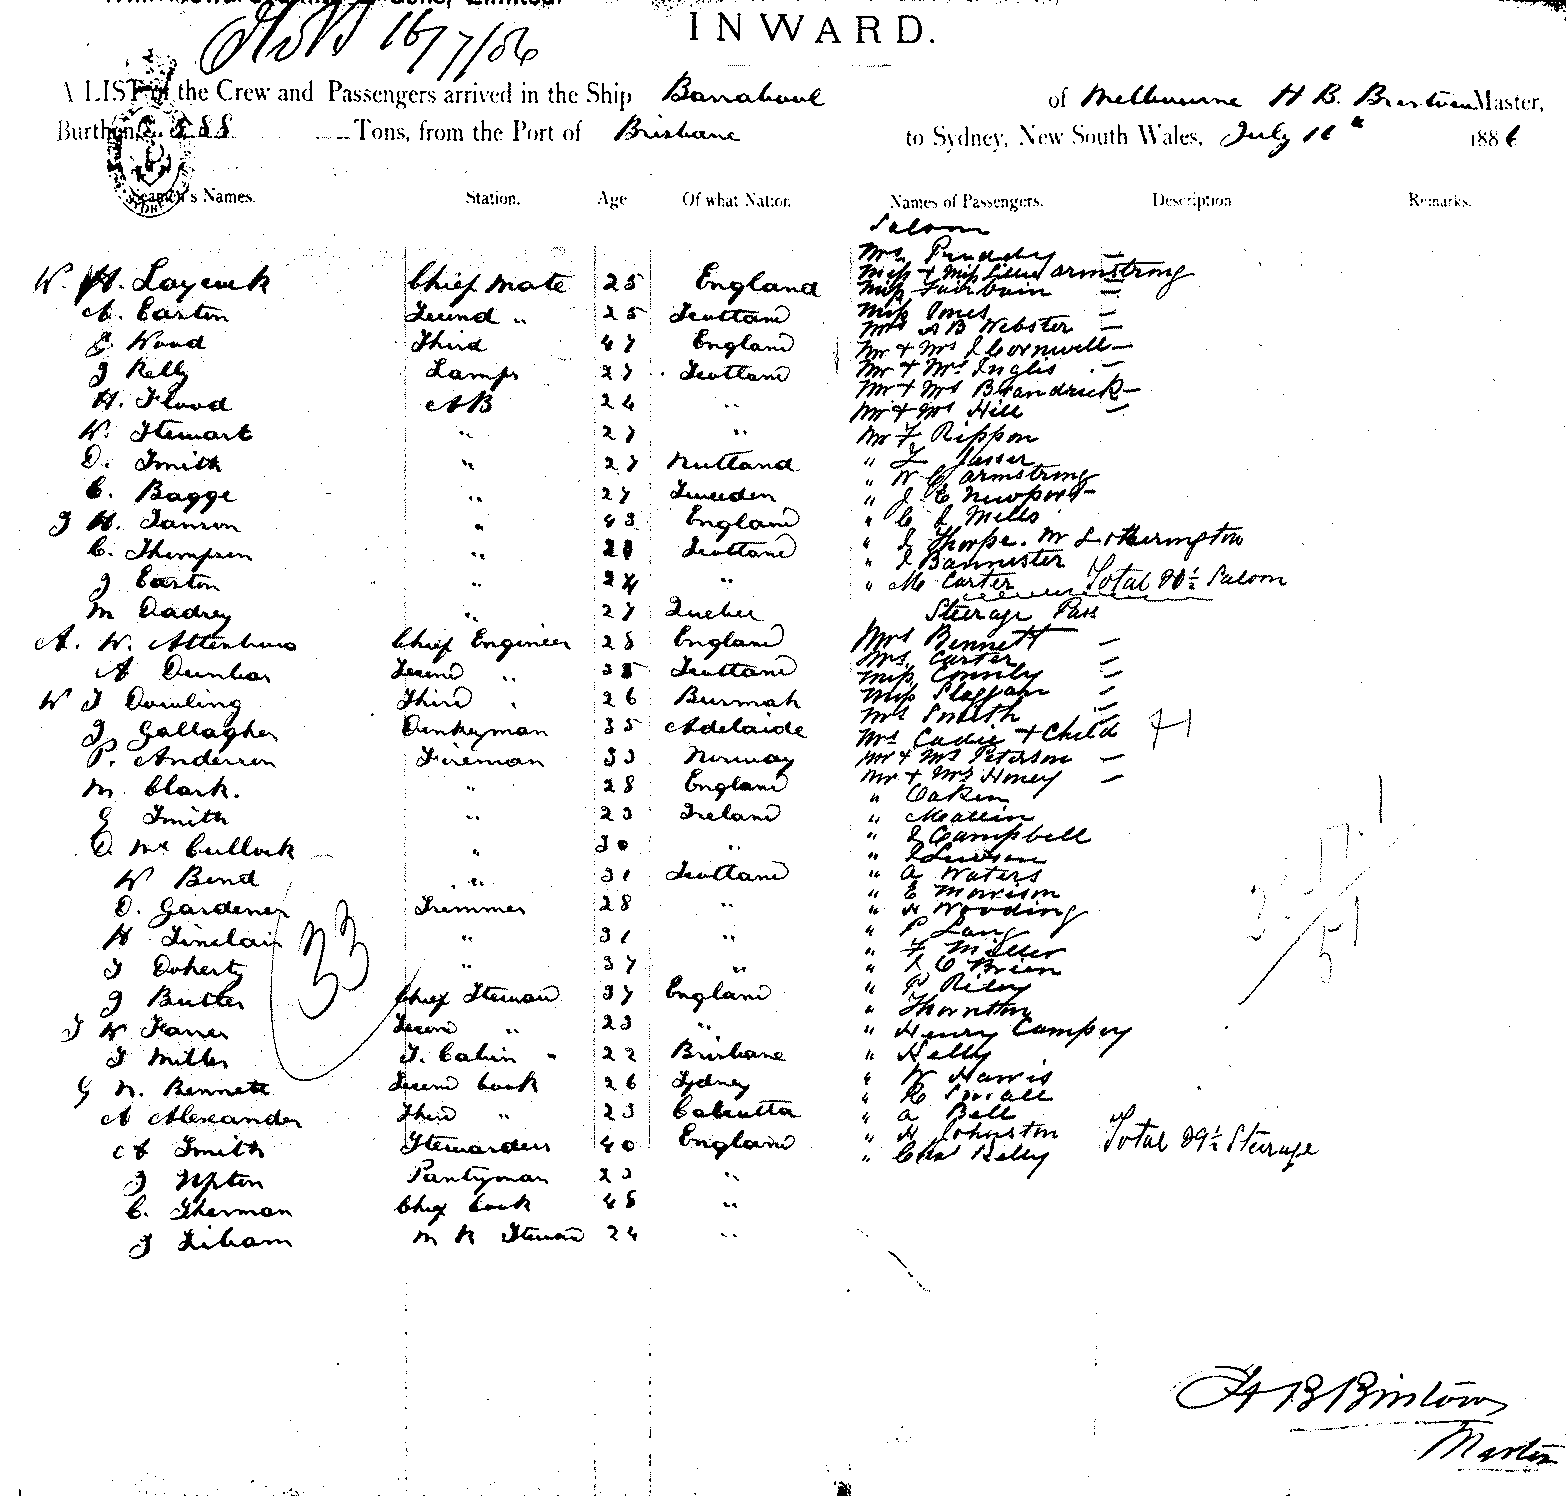 Sons, Limited.
16/7/86
INWARD.
A LIST of the Crew and Passengers arrived in the Ship Barrabool of Melbourne H B. Master,
Burthen 588 Tons, from the Port of Brisbane to Sydney, New South Wales, July 16th 1886
Seamen's Names. Station. Age Of what Nation. Names of Passengers. Description Remarks.
Saloon
Mrs.
W. H. Laycock Chief Mate 25 England Miss + Miss Lillie Armstrong
Miss Fairbairn
A. Easton Second " 25 Scotland Miss Jones
Mrs A B Webster
J. Wood Third 47 England Mr + Mrs J Cornwell
J Kelly Lamps 27 Scotland Mr + Mrs Inglis
H. Flood AB 24 " Mr + Mrs Brandrick
Mr + Mrs Hill
W. Stewart " 27 " Mr F. Rippon
D. Smith " 27 Rutland "
" W C Armstrong
C. Bagge " 27 Sweeden " J. E Newport
J H. " 43 England " C J Mills
C. Thompson " Scotland " J Thorpe. Mr Lotherington
" J Bannister
J Easton " " " M Carter Total 20½ Saloon
M " 27 Quebec Steerage Pass
A. W. Attenburo Chief Engineer 28 England Mrs Bennett
Mrs. Carter
A Dunbar Second " 35 Scotland Miss Connly
W J Dowling Third " 26 Burmah Miss
Mrs Smith
J Gallagher Donkeyman 35 Adelaide Mrs Cadie + Child
P. Anderson Fireman 33 Norway Mr + Mrs Peterson
Mr + Mrs Honey
M. Clark. " 28 England " Oaken
G Smith " 23 Ireland "
" J Campbell
D. McCullock " 30 " "
W Bend " 31 Scotland " A Waters
" E Morrison
D. Gardener Trimmer 28 " " H Wooding
H Sinclair " 31 " " P Lang
33
" F Miller
J Doherty " 37 " " J O Brien
J Butler Chief Steward 37 England " P Riley
" Thornton
J W Second " 23 " " Henry Campey
J Miller S. Cabin " 22 Brisbane " Kelly
G N. Bennett Second Cook 26 Sydney " W Harris
" R Small
A Alexander Third " 23 Calcutta " A Bell
A Smith Stewardess 40 England " H Johnston Total 29½ Steerage
" Chas Kelly
J Upton Pantryman 23 "
C. Sherman Chief Cook 48 "
J M R Steward 24 "
H B
Master